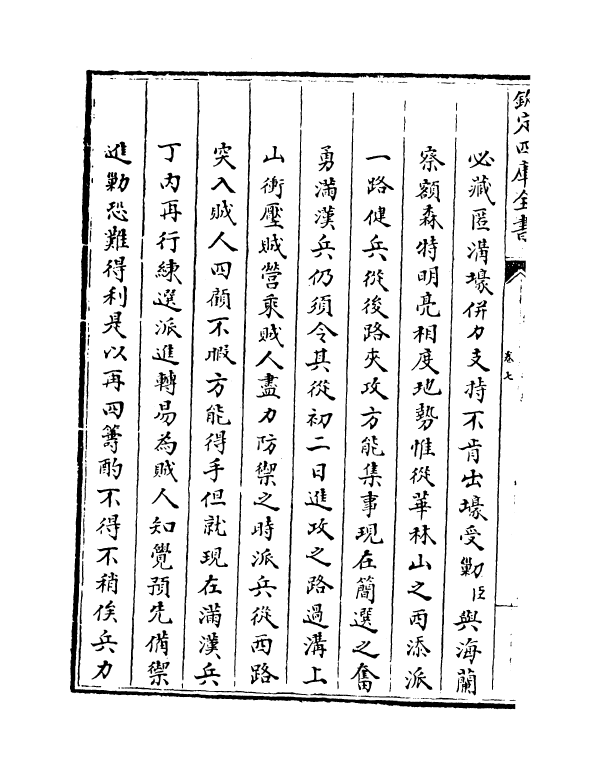 欽定四庫全書
卷七
必藏匿溝壕併力支持不肯出壕受勦臣與海蘭
察額森特明亮相度地勢惟從華林山之西添派
一路健兵從後路夾攻方能集事現在簡選之奮
勇滿漢兵仍須令其從初二日進攻之路過溝上
山衝壓賊營乘賊人盡力防禦之時派兵從西路
突入賊人四顧不暇方能得手但就現在滿漢兵
丁內再行練選派進轉易為賊人知覺預先備禦
進勦恐難得利是以再四籌酌不得不稍俟兵力